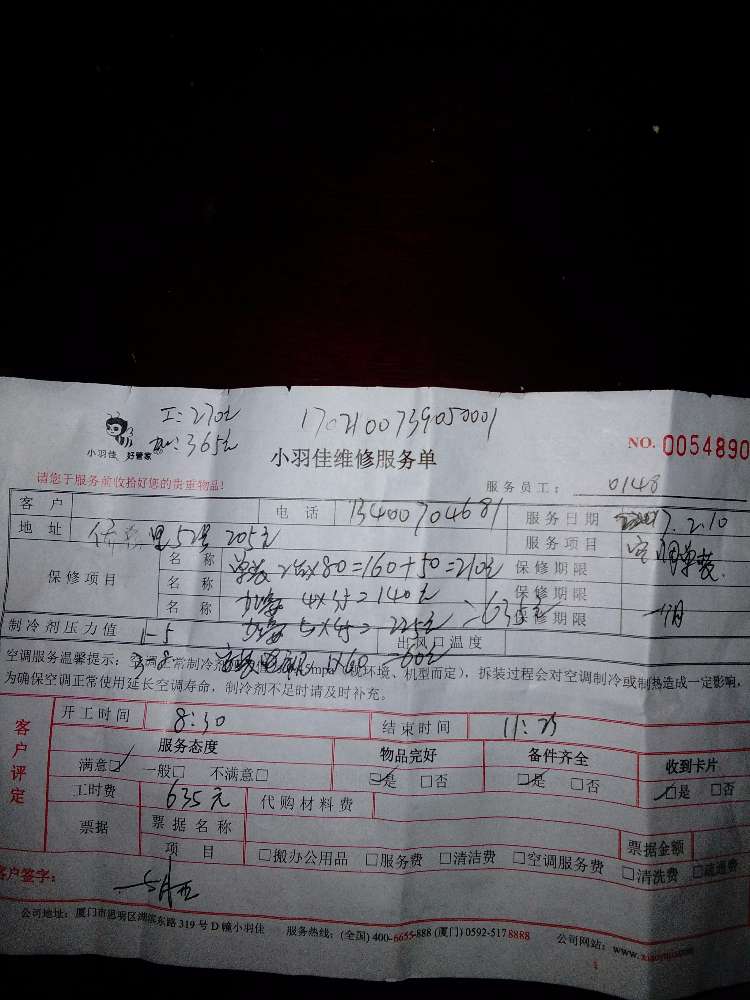 工:270元
1702100739050001
小羽佳 好管家
365元
小羽佳维修服务单
NO. 0054890
请您于服务前收拾好您的贵重物品!
服务员工: 0148
客 户
电 话 13400704681
服务日期 2017.2.10
地 址
里52号205元
服务项目 空调单装
保修项目
名 称 单装 2台×80=160+50=210元
保修期限
名 称 加氟 4×35=140元
保修期限
名 称 加氟 5×45=225元 =635元
保修期限 一个月
制冷剂压力值 1-5
出风口温度
空调服务温馨提示: 空调正常制冷剂 1×60=60元 mpa(视环境、机型而定),拆装过程会对空调制冷或制热造成一定影响,
为确保空调正常使用延长空调寿命,制冷剂不足时请及时补充。
客户评定
开工时间 8:30
结束时间 11:25
服务态度
物品完好
备件齐全
收到卡片
满意☑ 一般□ 不满意□
☑是 □否
☑是 □否
☑是 □否
工时费 635元
代购材料费
票据
票据名称
票据金额
项 目
□搬办公用品 □服务费 □清洁费 □空调服务费 □清洗费 □疏通费
客户签字:
公司地址: 厦门市思明区湖滨东路319号D幢小羽佳 服务热线: (全国) 400-6655-888 (厦门) 0592-5178888 公司网站: www.xiaoyujia.com